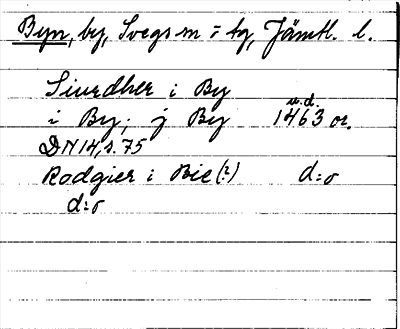 Byn, by, Svegs sn o tg, Jämtl. l.
Siurdher i By
u.d.
i By; j By 1463 or.
DN 14, s. 75
Rodgier i Bie (?) d:o
d:o